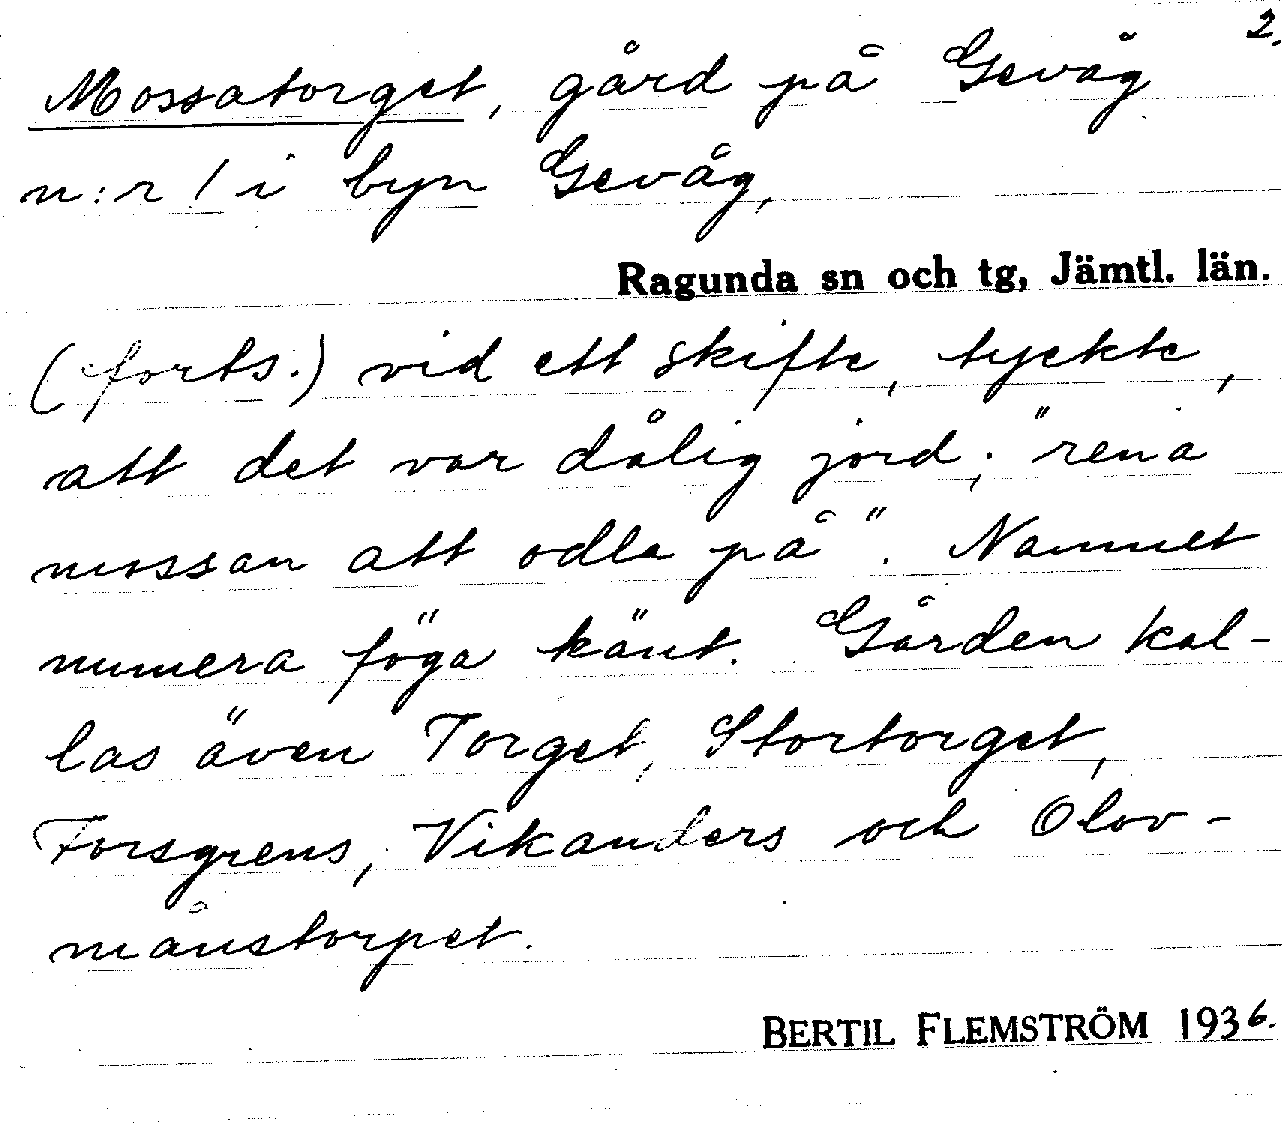 2.
Mossatorget, gård på Gevåg
n:r 1 i byn Gevåg,
Ragunda sn och tg, Jämtl. län.
(forts.) vid ett skifte, tyckte,
att det var dålig jord; "rena
mossan att odla på". Namnet
numera föga känt. Gården kal-
las även Torget, Stortorget,
Forsgrens, Vikanders och Olov-
månstorpet.
BERTIL FLEMSTRÖM 1936.